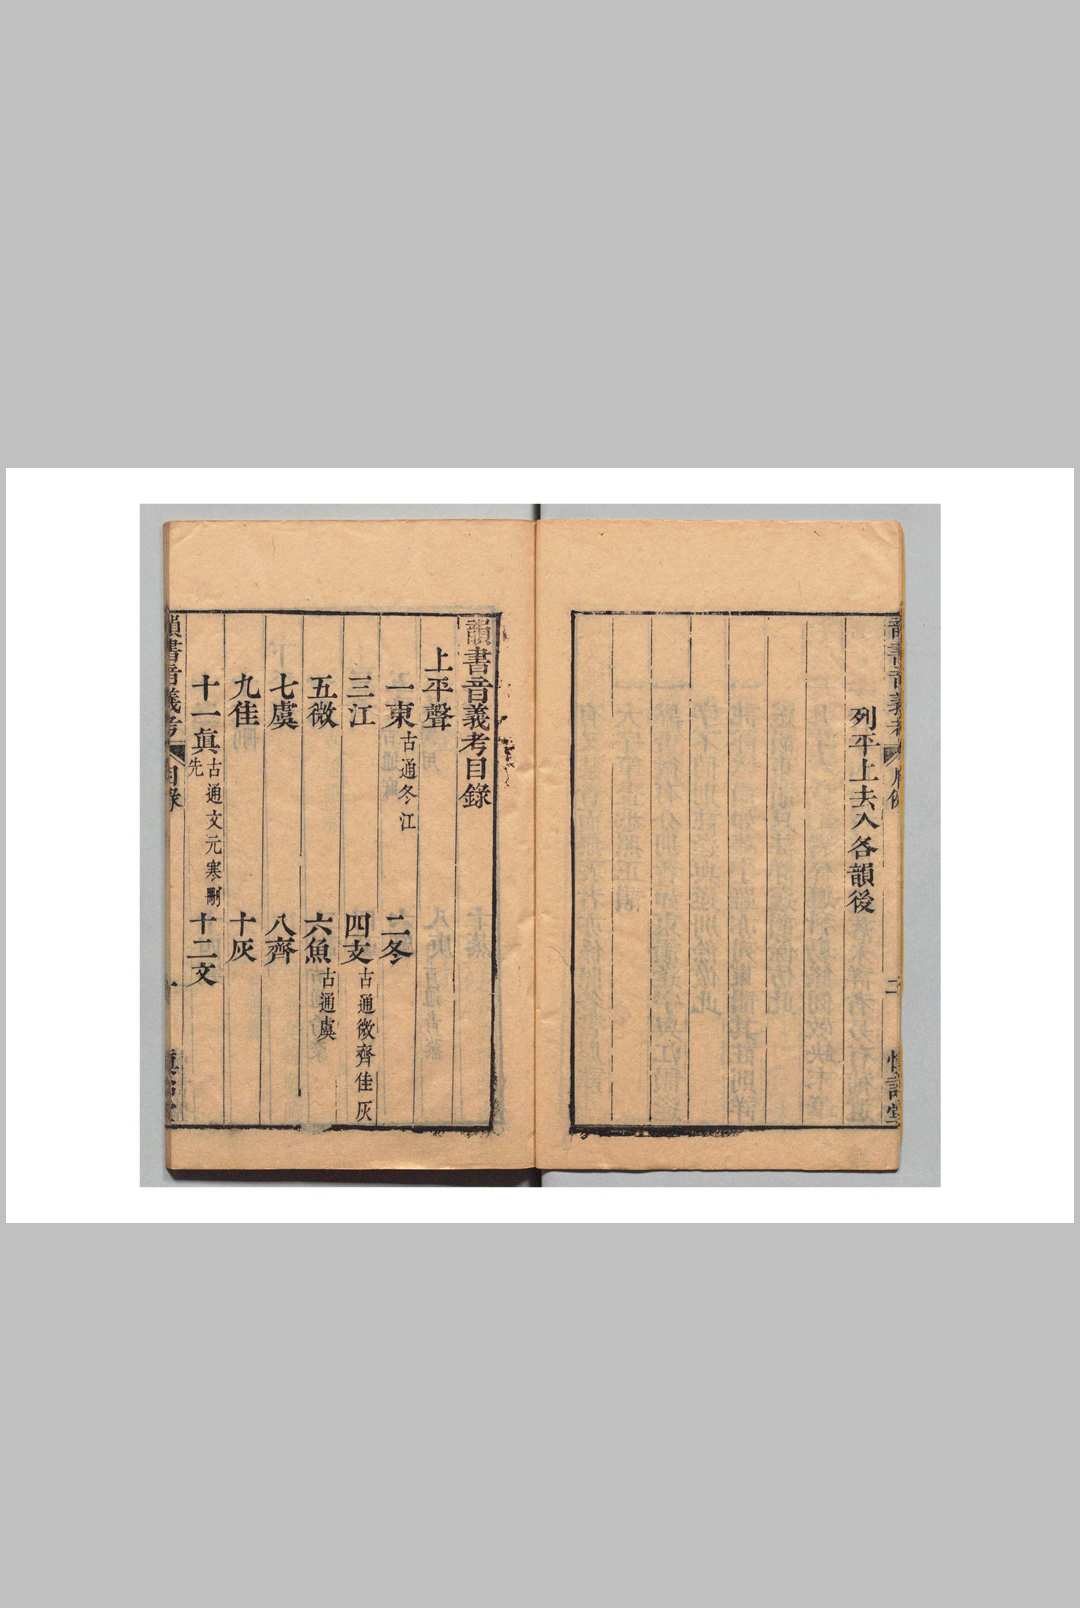 列平上去入各韻後
韻書音義考目錄
上平聲
一東古通冬江 二冬
三江 四支古通微齊佳灰
五微 六魚古通虞
七虞 八齊
九佳 十灰
十一眞古通文元寒刪先 十二文
韻書音義考 目錄 一